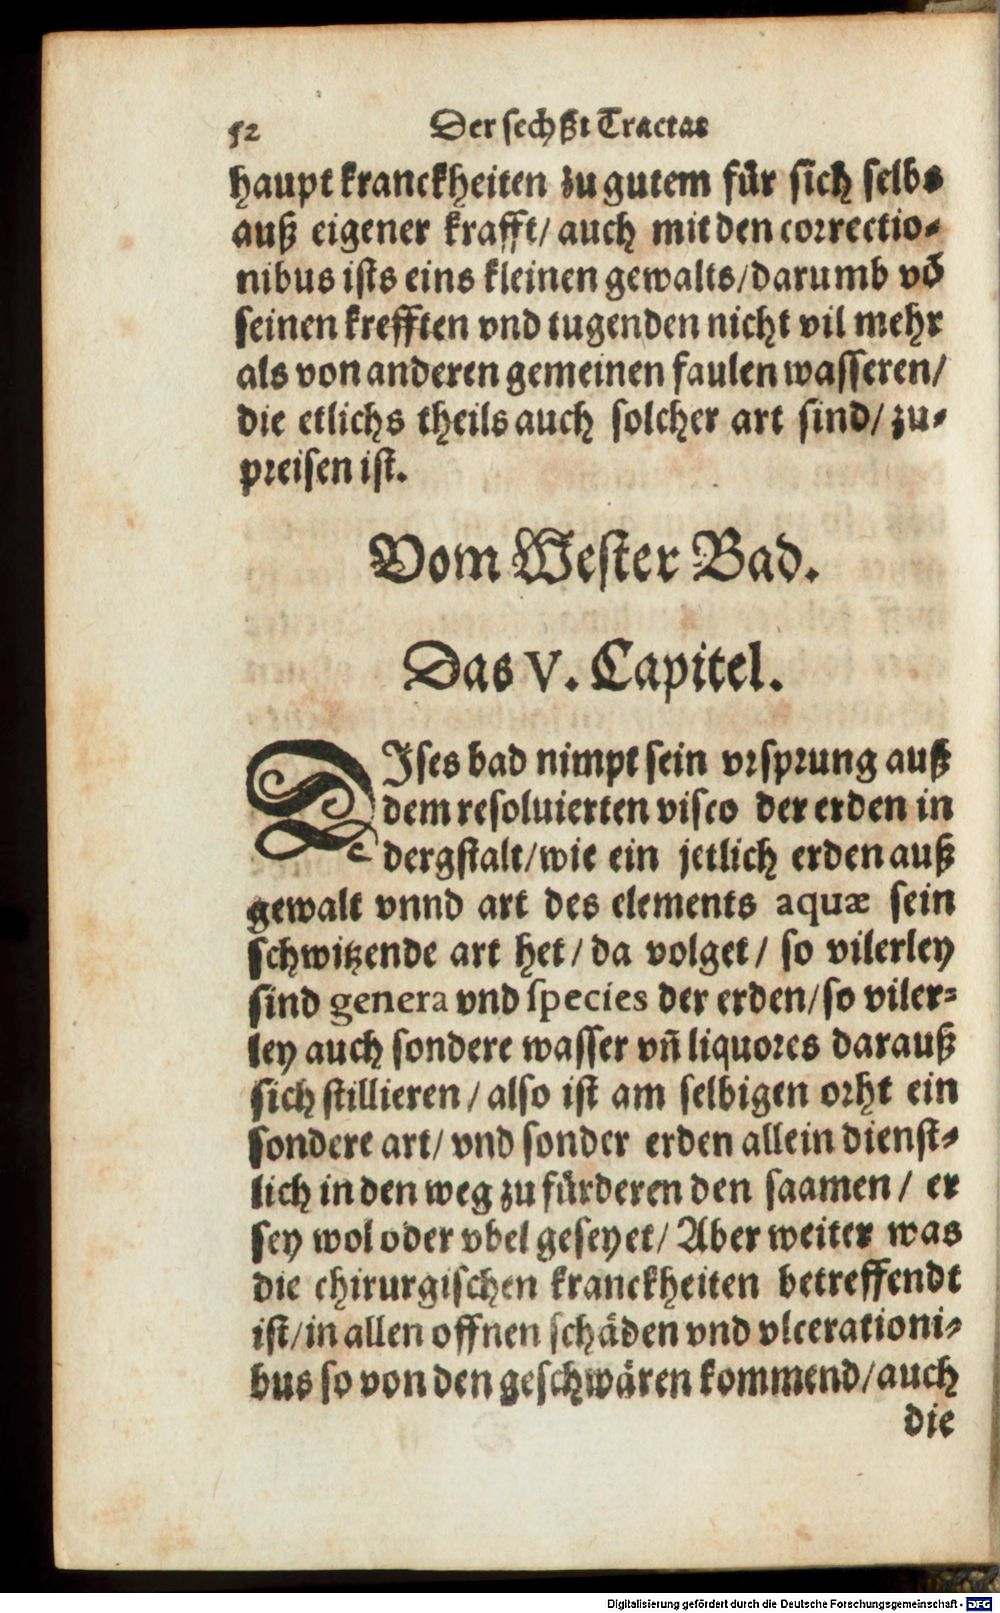 52 Der sechßt Tractat
haupt kranckheiten zu gutem für sich selbs
auß eigener krafft/ auch mit den correctio-
nibus ists eins kleinen gewalts/ darumb võ
seinen krefften vnd tugenden nicht vil mehr
als von anderen gemeinen faulen wasseren/
die etlichs theils auch solcher art sind/ zu-
preisen ist.
Vom Wester Bad.
Das V. Capitel.
DJses bad nimpt sein vrsprung auß
dem resoluierten visco der erden in
dergstalt/ wie ein jetlich erden auß
gewalt vnnd art des elements aquæ sein
schwitzende art het/ da volget/ so vilerley
sind genera vnd species der erden/ so viler-
ley auch sondere wasser vñ liquores darauß
sich stillieren/ also ist am selbigen orht ein
sondere art/ vnd sonder erden allein dienst-
lich in den weg zu fürderen den saamen/ er
sey wol oder vbel geseyet/ Aber weiter was
die chirurgischen kranckheiten betreffendt
ist/ in allen offnen schäden vnd vlcerationi-
bus so von den geschwären kommend/ auch
die
Digitalisierung gefördert durch die Deutsche Forschungsgemeinschaft - DFG